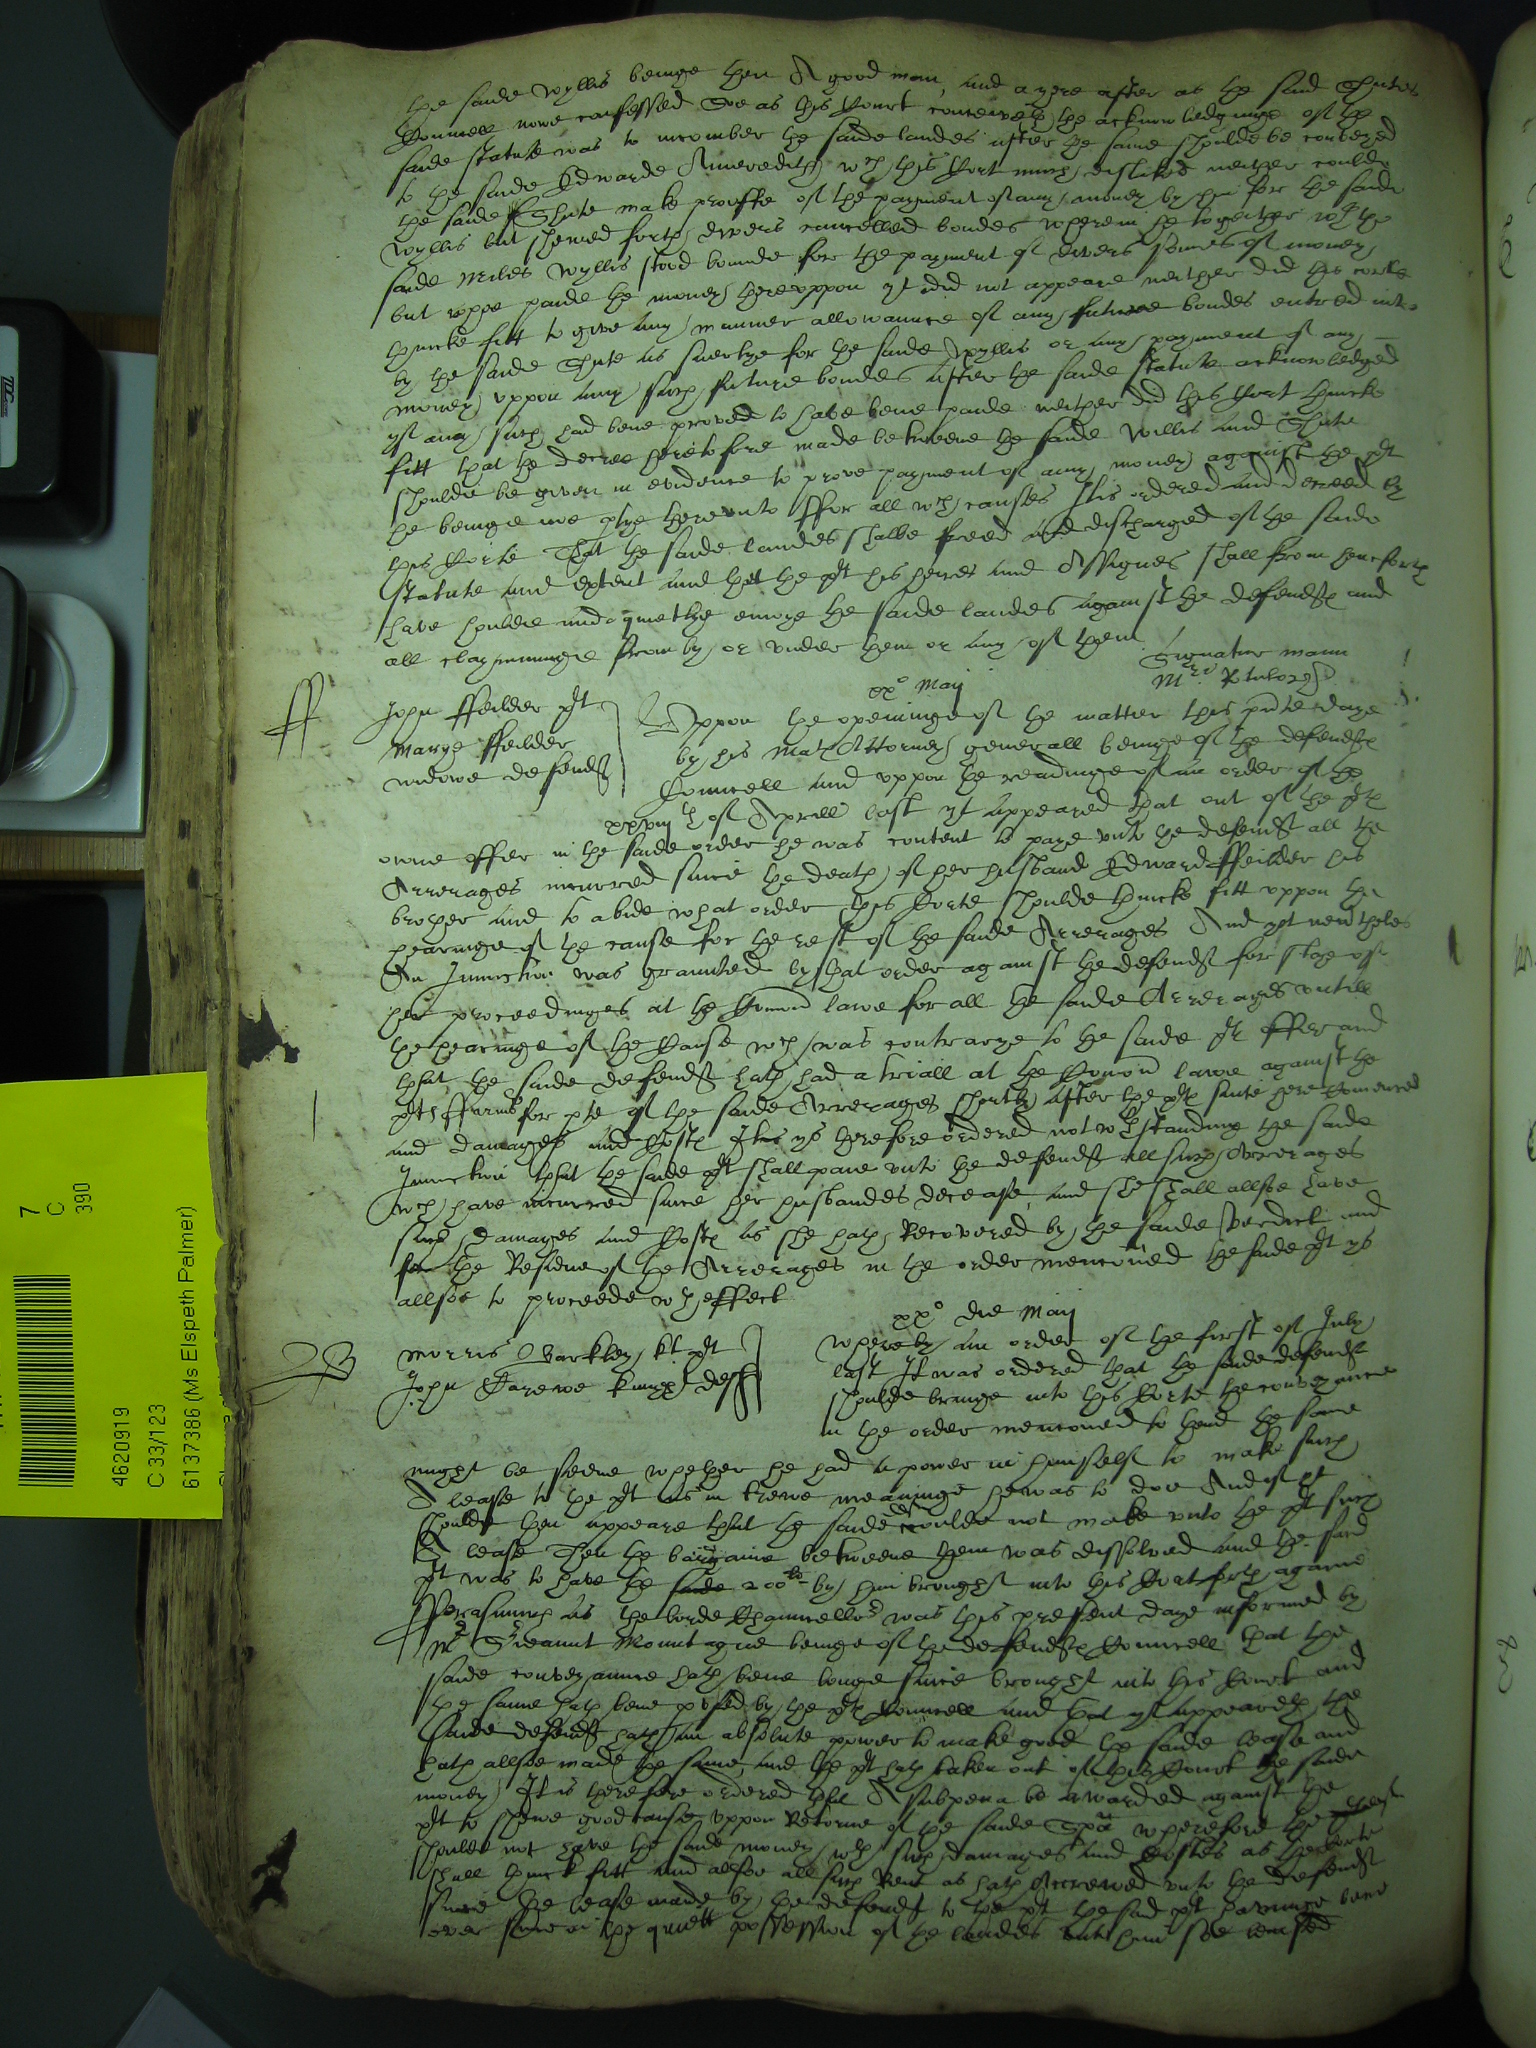 the saide wyllis beinge then A good man, and a yere after as the said Chutes
Councell nowe confessed Soe as this Court conceiveth the acknowledginge of the
saide statute was to incomber the saide landes after the same shoulde be conveyed
to the saide Edwarde Ameredith wch this Cort much dislikes neither coulde
the saide Chute make prouffe of the payment of any money by him for the saide
wyllis but shewed forth divers cancelled bondes wherein he together wth the
saide Miles wyllis stood bounde for the payment of divers somes of money
but whoe paide the money thereuppon yt did not appeare neither did this corte
thincke fitt to give any manner allowaunce of any future bondes entred into
by the saide Chute as suertye for the saide Wyllis or any payment of any
money uppon any such future bondes after the saide statute acknowledged
yf any such had bene proved to have bene paide neither did this Cort thincke
fitt that the decree heretofore made betweene the saide Willis and Chute
shoulde be given in evidence to prove payment of any money against the plt
he beinge noe ptye thereunto ffor all wch causes It is ordered and decreed by
this Corte That the saide landes shalbe freed and discharged of the saide
statute and extent and that the plt his heires and Assignes shall from henceforth
have houlde and quietlye enioye the saide landes against the defendtes and
all clayminge from by or under them or any of them
Signatur manu
Mri Rotulorum
xxo Maij
John ffeilder plt
Marye ffeilder
widowe defendt
Uppon the openinge of the matter this pnte daye
by his Mats Attorney generall beinge of the defendtes
Councell and uppon the readinge of an order of the
xxviijth of Aprill last yt appeared that out of the pltes
owne offer in the saide order he was content to paye unto the defendt all the
Arrerages incurred since the death of her husband Edward ffeilder his
brother and to abide what order this Corte shoulde thincke fitt uppon the
hearinge of the cause for the rest of the saide Arrerages And yet nevertheles
An Iniunction was graunted by that order against the defendt for staye of
her proceedinges at the Comon lawe for all the saide Arrerages untill
the hearinge of the Cause wch was contrarye to the saide plt offer and
that the saide defendt hath had a triall at the Comon lawe against the
pltes ffarmor for pte of the saide Arrerages shortly after the pltes suite here Comenced
and damages and Costes It is therefore ordered notwthstanding the saide
Iniunction that the saide plt shall paie unto the defendt all such Arrerages
wch have incurred since her husbandes decease and she shall allsoe have
such damages and Costes as she hath Recovered by the saide Verdict and
for the Residue of the Arrerages in the order mencioned the saide plt ys
allsoe to proceede wth effect
xxo die Maij
Morris Barkley kt plt
John Carewe defendt
Whereby an order of the first of July
last It was ordered that the saide defendt
shoulde bringe into this Corte the conveyaunce
in the order mencioned to thend the same
might be seene whether he had a power in himself to make such
A lease to the plt as in trewe meaninge he was to doe And if yt
shoulde then appeare that the saide coulde not make unto the plt such
A lease Then the bargaine betweene them was dissolved and the said
plt was to have the saide 200li by him brought into this Court forth againe
fforasmuch as the Lorde Chauncellor was this present daye informed by
Mr Sieaunt Mountague beinge of the defendtes Councell that the
saide conveyaunce hath bene longe since brought into this Court and
the same hath bene pused by the pltes Councell and that yt appeareth the
saide defendt hath an absolute power to make good the saide lease and
hath allsoe made the same and the plt hath taken out of this Court the saide
money It is therefore ordered that A subpena be awarded against the
plt to shewe good cause uppon Retorne of the saide Spa wherefore the
shoulde not have the saide money wth such damages and Costes as the Corte
shall thinck fitt and allsoe all such Rent as hath Accrewed unto the defendt
since the lease made by the defendt to the plt the said plt havinge bene
ever since in the quiett possession of the landes unto him soe demised
7
C
390
4620919
C 33/123
6137386 (Ms Elspeth Palmer)